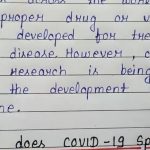 proper drug or v
developed for the
disease. However, c
research is being
the development
ne.
does COVID-19 Sp